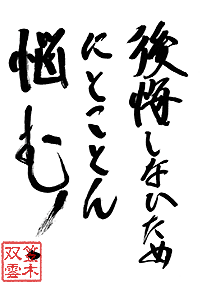 後悔しないため
にとことん
悩む
鈴木
双雲